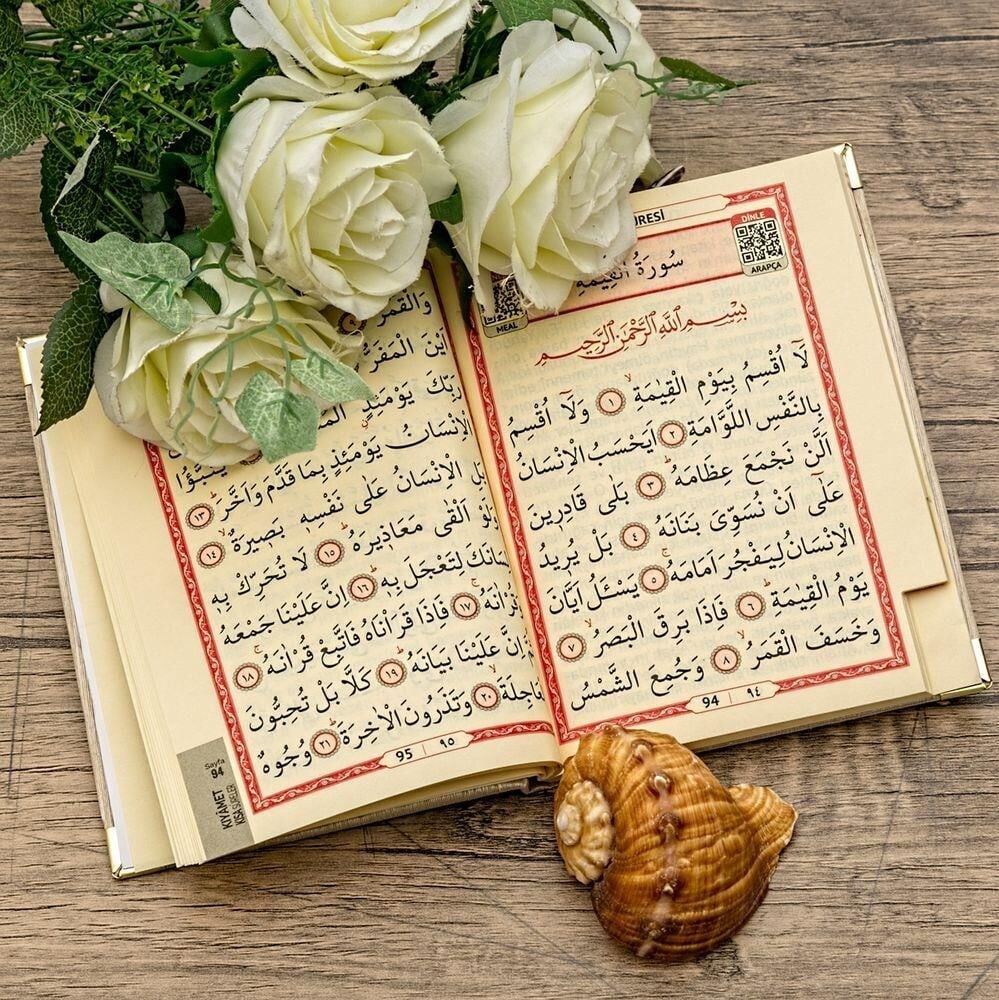 URESİ
DİNLE
ARAPÇA
سُورَةُ الْقِيٰمَةِ
بِسْمِ اللّٰهِ الرَّحْمٰنِ الرَّحِيمِ
لَٓا اُقْسِمُ بِيَوْمِ الْقِيٰمَةِۙ ﴿١﴾ وَلَٓا اُقْسِمُ
بِالنَّفْسِ اللَّوَّامَةِ ﴿٢﴾ اَيَحْسَبُ الْاِنْسَانُ
اَلَّنْ نَجْمَعَ عِظَامَهُۜ ﴿٣﴾ بَلٰى قَادِرِينَ
عَلٰٓى اَنْ نُسَوِّيَ بَنَانَهُ ﴿٤﴾ بَلْ يُرِيدُ
الْاِنْسَانُ لِيَفْجُرَ اَمَامَهُۚ ﴿٥﴾ يَسْـَٔلُ اَيَّانَ
يَوْمُ الْقِيٰمَةِۜ ﴿٦﴾ فَاِذَا بَرِقَ الْبَصَرُۙ ﴿٧﴾
وَخَسَفَ الْقَمَرُۙ ﴿٨﴾ وَجُمِعَ الشَّمْسُ
94 | ٩٤
MEAL
وَالْقَمَرُ
اَيْنَ الْمَفَرُّ
رَبِّكَ يَوْمَئِذٍ
الْاِنْسَانُ يَوْمَئِذٍ بِمَا قَدَّمَ وَاَخَّرَۜ ﴿١٣﴾
بَلِ الْاِنْسَانُ عَلٰى نَفْسِهِ بَصِيرَةٌۙ ﴿١٤﴾
وَلَوْ اَلْقٰى مَعَاذِيرَهُۜ ﴿١٥﴾ لَا تُحَرِّكْ بِهِ
لِتَعْجَلَ بِهِۜ ﴿١٦﴾ اِنَّ عَلَيْنَا جَمْعَهُ
﴿١٧﴾ فَاِذَا قَرَأْنَاهُ فَاتَّبِعْ قُرْاٰنَهُۚ ﴿١٨﴾
اِنَّ عَلَيْنَا بَيَانَهُۜ ﴿١٩﴾ كَلَّا بَلْ تُحِبُّونَ
﴿٢٠﴾ وَتَذَرُونَ الْاٰخِرَةَۜ ﴿٢١﴾ وُجُوهٌ
95 | ٩٥
Sayfa
94
KIYÂMET
KISA SURELER